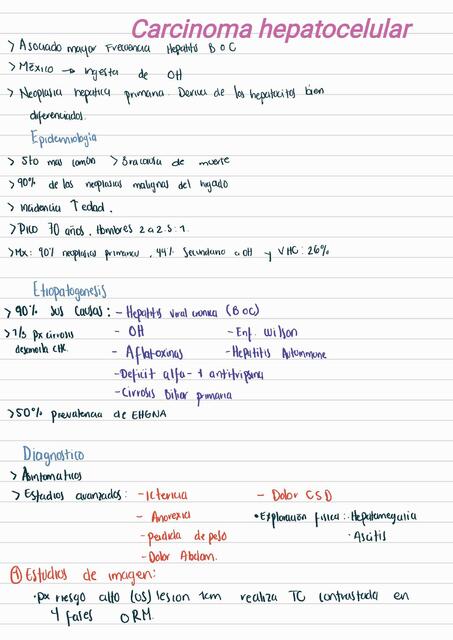 Carcinoma hepatocelular
> Asociado mayor Frecuencia Hepatitis B o C
> México → ingesta de OH
> Neoplasia hepatica primaria. Deriva de los hepatocitos bien
diferenciados.
Epidemiología
> 5to mas común > 3ra causa de muerte
> 90% de las neoplasias malignas del higado
> incidencia ↑ edad.
> Pico 70 años. Hombres 2 a 2.5:1.
> Mx: 90% neoplasias primarias, 44% Secundario a OH y VHC: 26%
Etiopatogenesis
> 90% sus causas: - Hepatitis viral cronica (B o C)
> 1/3 px cirrosis - OH - Enf. Wilson
desarrolla CHC. - Aflatoxinas - Hepatitis Autoinmune
- Deficit alfa-1 antitripsina
- Cirrosis Biliar primaria
> 50% prevalencia de EHGNA
Diagnostico
> Asintomaticos
> Estadios avanzados: - Ictericia - Dolor CSD
- Anorexia • Exploración física: · Hepatomegalia
- perdida de peso · Ascitis
- Dolor Abdom.
① Estudios de imagen:
· px riesgo alto (os) lesion 1cm realiza TC contrastada en
4 fases O RM.